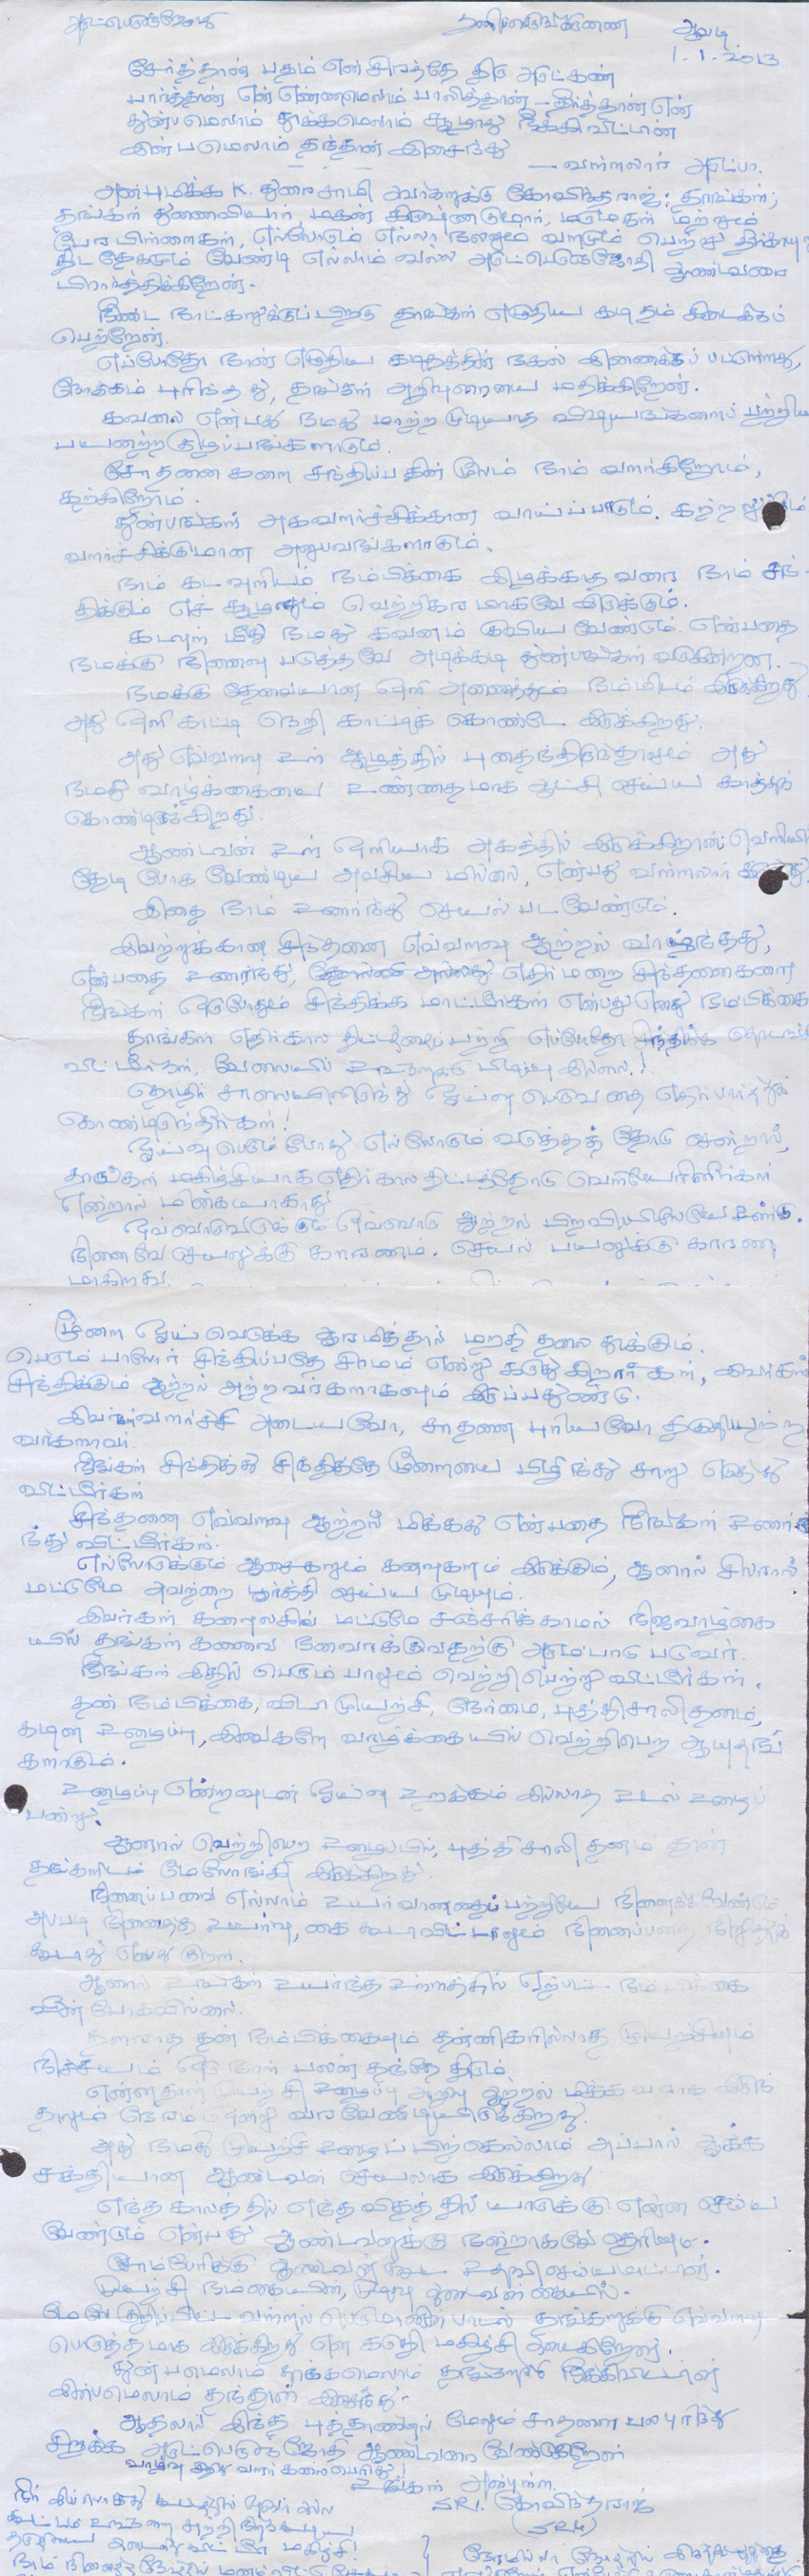 அருட்பெருஞ்ஜோதி தனிப்பெருங்கருணை ஆவடி
1.1.2013
சேர்த்தான் பதம் என் சிரத்தே திரு அருட்கண்
பார்த்தான் என் எண்ணமெலாம் பாலித்தான் - தீர்த்தான் என்
துன்பமெலாம் தூக்கமெலாம் சூழாது நீக்கிவிட்டான்
இன்பமெலாம் தந்தான் இசைந்து
- வள்ளலார் அருட்பா.
அன்புமிக்க K. துரைசாமி அவர்களுக்கு கோவிந்தராஜ்; தாங்கள்;
தங்கள் துணைவியார், மகன் கிருஷ்ணகுமார், மருமகள் மற்றும்
பேரபிள்ளைகள், எல்லோரும் எல்லா நலமும் வளமும் பெற்று தீர்காயு
திட தேகமும் வேண்டி எல்லாம் வல்ல அருட்பெருஞ்ஜோதி ஆண்டவரை
பிரார்த்திக்கிறேன்.
நீண்ட நாட்களுக்குப்பிறகு தாங்கள் எழுதிய கடிதம் கிடைக்கப்
பெற்றேன்.
எப்போதோ நான் எழுதிய கடிதத்தின் நகல் இணைக்கப் பட்டுள்ளது,
நோக்கம் புரிந்தது, தங்கள் அறிவுரையை மதிக்கிறேன்.
கவலை என்பது நமது மாற்ற முடியாத விஷயங்களைப் பற்றிய
பயனற்ற குழப்பங்களாகும்.
சோதனைகளை சந்திப்பதின் மூலம் நாம் வளர்கிறோம்,
கற்கிறோம்.
துன்பங்கள் அகவளர்ச்சிக்கான வாய்ப்பாகும். கற்றலுக்கும்
வளர்ச்சிக்குமான அனுபவங்களாகும்.
நாம் கடவுளிடம் நம்பிக்கை இழக்காதவரை நாம் சந்-
திக்கும் எச் சூழலும் வெற்றிகரமாகவே இருக்கும்.
கடவுள் மீது நமது கவனம் குவிய வேண்டும் என்பதை
நமக்கு நினைவு படுத்தவே அடிக்கடி துன்பங்கள் வருகின்றன.
நமக்கு தேவையான ஒளி அனைத்தும் நம்மிடம் இருக்கிறது
அது ஒளி காட்டி நெறி காட்டிக் கொண்டே இருக்கிறது.
அது எவ்வளவு உள் ஆழத்தில் புதைந்திருந்தாலும் அது
நமது வாழ்க்கையை உன்னதமாக ஆட்சி செய்ய காத்துக்
கொண்டிருக்கிறது.
ஆண்டவன் உள் ஒளியாக அகத்தில் இருக்கிறான்; வெளியில்
தேடி போக வேண்டிய அவசியமில்லை, என்பது வள்ளலார்
இதை நாம் உணர்ந்து செயல் பட வேண்டும்.
இவற்றுக்கான சிந்தனை எவ்வளவு ஆற்றல் வாய்ந்தது,
என்பதை உணர்ந்து, எதிர்மறை சிந்தனைகளை
நீங்கள் ஒருபோதும் சிந்திக்க மாட்டீர்கள் என்பது எனது நம்பிக்கை
தாங்கள் எதிர்கால திட்டத்தைப்பற்றி எப்போதோ சிந்திக்க தொடங்கி
விட்டீர்கள். வேலையில் உங்களுக்கு பிடிப்பு இல்லை.!
தொழிற்சாலையிலிருந்து ஓய்வு பெறுவதை எதிர்பார்த்துக்
கொண்டிருந்தீர்கள்!
ஓய்வு பெறும் போது எல்லோரும் வருத்தத்தோடு சென்றால்,
தாங்கள் மகிழ்சியாக எதிர்கால திட்டத்தோடு வெளியேறினீர்கள்
என்றால் மிகையாகாது
ஒவ்வொருவருக்கும் ஒவ்வொரு ஆற்றல் பிறவியிலேயே உண்டு.
நினைவே செயலுக்கு காரணம். செயல் பயனுக்கு காரண
மாகிறது.
மூளை ஓய்வெடுக்க ஆரம்பித்தால் மறதி தலை தூக்கும்.
பெரும்பாலோர் சிந்திப்பதே சிரமம் என்று கருதுகிறார்கள், இவர்கள்
சிந்திக்கும் ஆற்றல் அற்றவர்களாகவும் இருப்பதுண்டு.
இவர்கள் வளர்ச்சி அடையவோ, சாதனை புரியவோ தகுதியற்ற
வர்களாவர்.
நீங்கள் சிந்தித்து சிந்தித்தே மூளையை பிழிந்து சாறு எடுத்து
விட்டீர்கள்
சிந்தனை எவ்வளவு ஆற்றல் மிக்கது என்பதை நீங்கள் உணர்
ந்து விட்டீர்கள்.
எல்லோருக்கும் ஆசைகளும் கனவுகளும் இருக்கும், ஆனால் சிலரால்
மட்டுமே அவற்றை பூர்த்தி செய்ய முடியும்.
இவர்கள் கனவுலகில் மட்டுமே சஞ்சரிக்காமல் நிஜவாழ்கை
யில் தங்கள் கனவை நனவாக்குவதற்கு அரும்பாடு படுவர்.
நீங்கள் இதில் பெரும்பாலும் வெற்றி பெற்று விட்டீர்கள்.
தன் நம்பிக்கை, விடா முயற்சி, நேர்மை, புத்திசாலிதனம்,
கடின உழைப்பு, இவைகளே வாழ்க்கையில் வெற்றிபெற ஆயுதங்
களாகும்.
உழைப்பு என்றவுடன் ஓய்வு உறக்கம் இல்லாத உடல் உழைப்
பன்று.
ஆனால் வெற்றிபெற உழைப்பில், புத்திசாலிதனம் தான்
தங்களிடம் மேலோங்கி இருக்கிறது.
நினைப்பவை எல்லாம் உயர்வானதைப்பற்றியே நினைக்கவேண்டும்
அப்படி நினைத்த உயர்வு, கை கூடாவிட்டாலும் நினைப்பதை நிறுத்தக்
கூடாது என்பது குறள்.
ஆனால் உங்கள் உயர்ந்த உள்ளத்தில் ஏற்பட்ட நம்பிக்கை
வீண் போகவில்லை.
தளராத தன் நம்பிக்கையும் தன்னிகரில்லாத முயற்சியும்
நிச்சயம் ஒரு நாள் பலன் தந்தே தீரும்.
என்னதான் முயற்சி உழைப்பு அறிவு ஆற்றல் மிக்கவராக இருந்
தாலும் நேரம் ஒன்று வரவேண்டியிருக்கிறது.
அது நமது முயற்சி உழைப்பிற்கெல்லாம் அப்பால்
சக்தியான ஆண்டவன் செயலாக இருக்கிறது
எந்த காலத்தில் எந்த விதத்தில் யாருக்கு என்ன செய்ய
வேண்டும் என்பது ஆண்டவனுக்கு நன்றாகவே தெரியும்.
சோம்பேரிக்கு ஆண்டவன் கூட உதவி செய்யமாட்டான்.
முயற்சி நம்கையில், முடிவு ஆண்டவன் கையில்.
மேலே குறிப்பிட்ட வள்ளல் பெருமானின் பாடல் தங்களுக்கு எவ்வளவு
பொருத்தமாக இருக்கிறது என கருதி மகிழ்ச்சி அடைகிறேன்.
துன்பமெலாம் தூக்கமெலாம் நீக்கிவிட்டான்
இன்பமெலாம் தந்தான் இசைந்து.
ஆதலால் இந்த புத்தாண்டில் மேலும் சாதனை பல புரிந்து
சிறக்க அருட்பெருஞ்ஜோதி ஆண்டவரை வேண்டுகிறேன்
உங்கள் அன்புள்ள
கோவிந்தராஜ்